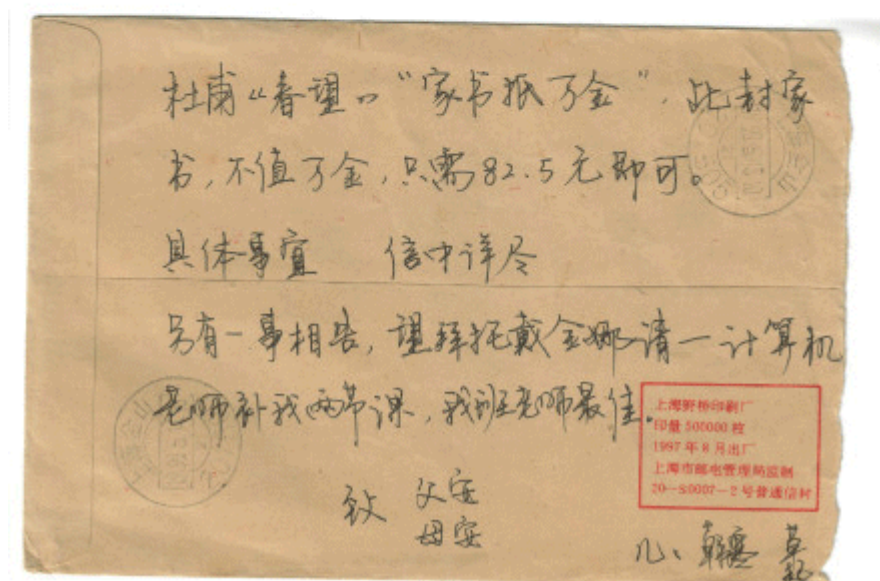 杜甫《春望》“家书抵万金”,此封家
书,不值万金,只需82.5元即可。
具体事宜 信中详尽
另有一事相告,望拜托戴金娜请一计算机
老师补我两节课,我班老师最佳.
上海野桥印刷厂
印量 500000 枚
1997 年 8 月出厂
上海市邮电管理局监制
20—S0007—2 号普通信封
致 父安
母安
儿、韩寒 草